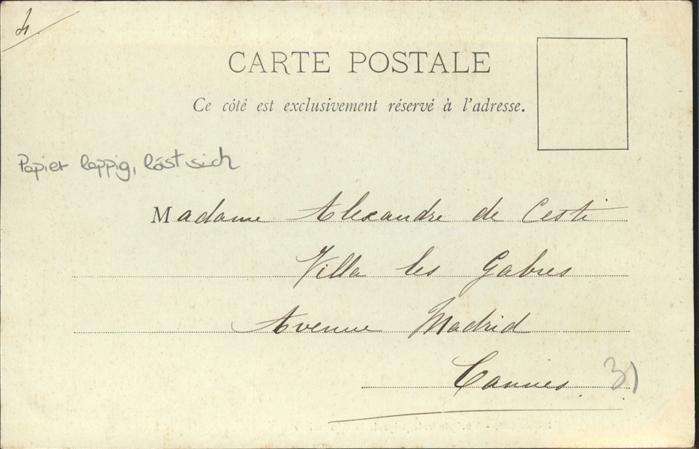 4
CARTE POSTALE
Ce côté est exclusivement réservé à l'adresse.
Papier lappig, löst sich
Madame Alexandre de Cesti
Villa les Gabres
Avenue Madrid
Cannes.
31